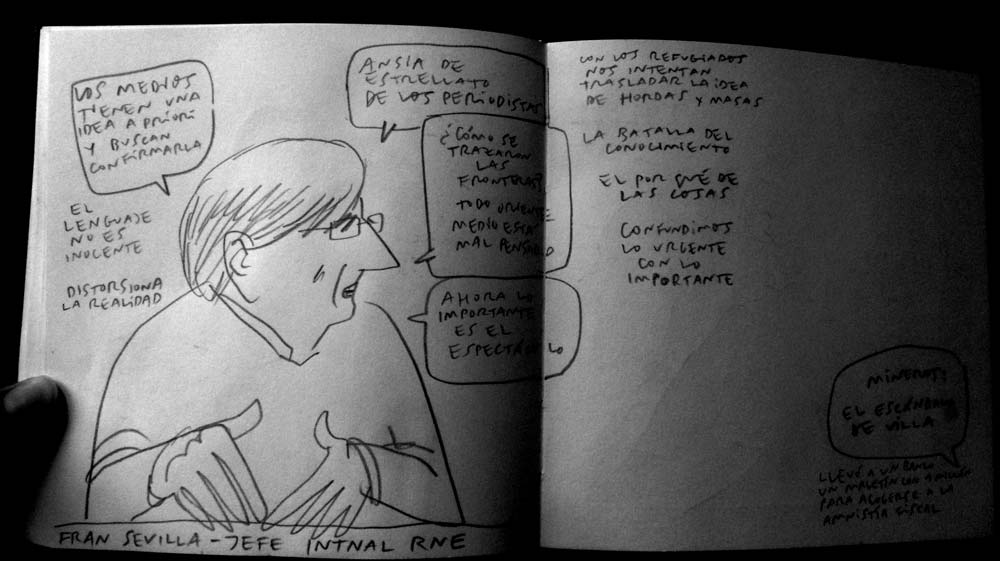 LOS MEDIOS
TIENEN UNA
IDEA A PRIORI
Y BUSCAN
CONFIRMARLA
EL
LENGUAJE
NO ES
INOCENTE
DISTORSIONA
LA REALIDAD
ANSIA DE
ESTRELLATO
DE LOS PERIODISTAS
¿CÓMO SE
TRAZARON
LAS
FRONTERAS?
TODO ORIENTE
MEDIO ESTÁ
MAL PENSADO
AHORA LO
IMPORTANTE
ES EL
ESPECTÁCULO
FRAN SEVILLA - JEFE INTNAL RNE
CON LOS REFUGIADOS
NOS INTENTAN
TRASLADAR LA IDEA
DE HORDAS Y MASAS
LA BATALLA DEL
CONOCIMIENTO
EL POR QUÉ DE
LAS COSAS
CONFUNDIMOS
LO URGENTE
CON LO
IMPORTANTE
EL ESCÁNDALO
DE VILLA
LLEVÓ A UN BANCO
UN MALETÍN CON 1 MILLÓN
PARA ACOGERSE A LA
AMNISTÍA FISCAL